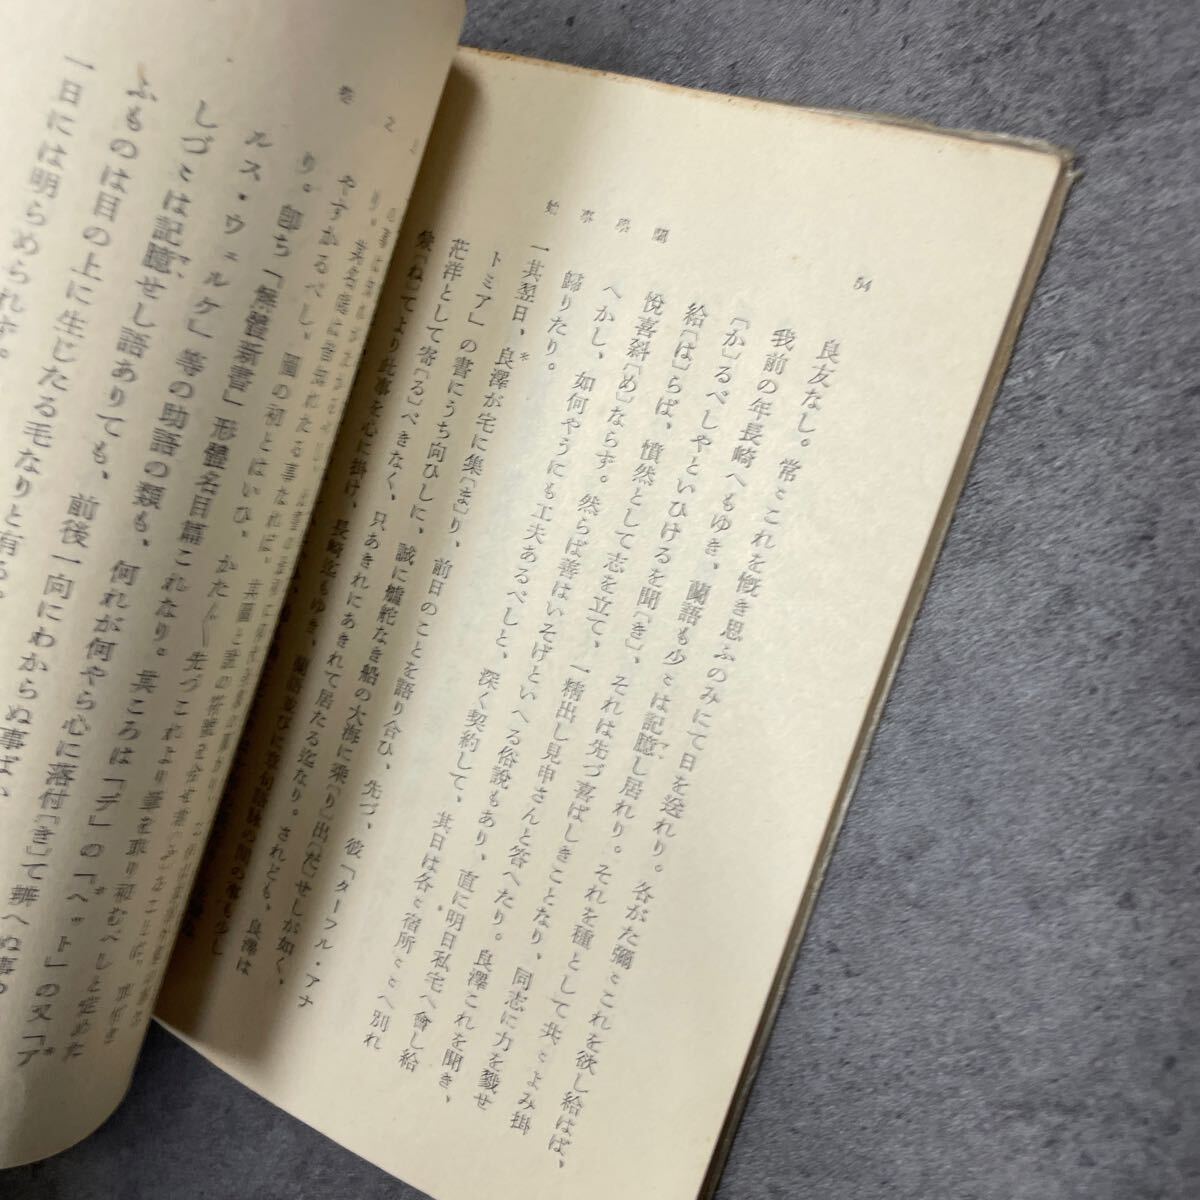 54
蘭學事始
良友なし。常〻これを慨き思ふのみにて日を送れり。各がた彌〻これを欲し給はば、
我前の年長崎へもゆき、蘭語も少〻は記臆し居れり。それを種として共〻よみ掛
〔か〕るべしやといひけるを聞〔き〕、それは先づ喜ばしきことなり、同志に力を戮せ
給〔は〕らば、憤然として志を立て、一精出し見申さんと答へたり。良澤これを聞き、
悅喜斜〔め〕ならず。然らば善はいそげといへる俗說もあり、直に明日私宅へ會し給
へかし、如何やうにも工夫あるべしと、深く契約して、其日は各〻宿所〻〻へ別れ
歸りたり。
一其翌日、良澤が宅に集〔ま〕り、前日のことを語り合ひ、先づ、彼「ターフル・アナ
トミア」の書にうち向ひしに、誠に艫舵なき船の大海に乘〔り〕出〔だ〕せしが如く、
茫洋として寄〔る〕べきなく、只あきれにあきれて居たる迄なり。されども、良澤は
候〔ね〕てより此事を心に掛け、長崎迄もゆき、蘭語並びに章句語脉の間の事も少し
卷之
やすかるべし、圖の初とはいひ、かた〴〵先づこれより筆を取り初むべしと定めた
り。卽ち「解體新書」形體名目篇これなり。其ころは「デ」の「ヘット」の又「ア
ルス・ウェルケ」等の助語の類も、何れが何やら心に落付〔き〕て辨へぬ事
しづ〻は記臆せし語ありても、前後一向にわからぬ事ばか
ふものは目の上に生じたる毛なりと有る
一日には明らめられず。